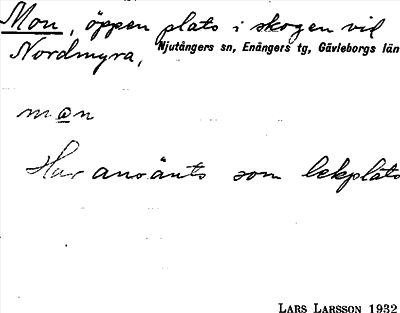 Mon, öppen plats i skogen vid
Nordmyra, Njutångers sn, Enångers tg, Gävleborgs län
mɷn
Har använts som lekplats
LARS LARSSON 1932